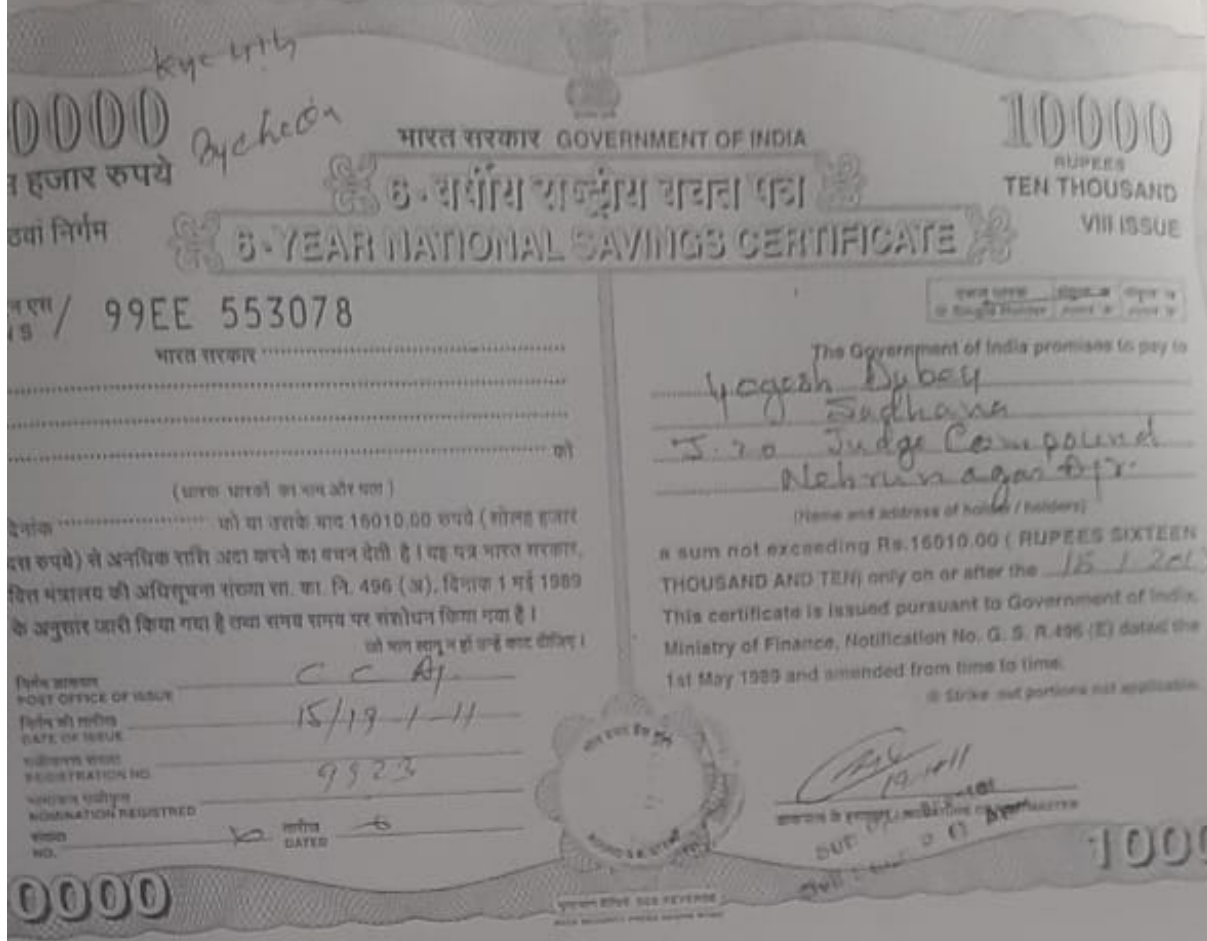 Kyc with
0000
10000
न हजार रुपये
RUPEES
TEN THOUSAND
ठवां निर्गम
VIII ISSUE
भारत सरकार GOVERNMENT OF INDIA
6-वर्षीय राष्ट्रीय बचत पत्र
6-YEAR NATIONAL SAVINGS CERTIFICATE
एन एस
/ 99EE 553078
भारत सरकार
को
(धारक धारकों का नाम और पता)
दिनांक को या उसके बाद 16010.00 रुपये (सोलह हजार
दस रुपये) से अनधिक राशि अदा करने का वचन देती है। यह पत्र भारत सरकार,
वित्त मंत्रालय की अधिसूचना संख्या सा. का. नि. 496 (अ), दिनांक 1 मई 1989
के अनुसार जारी किया गया है तथा समय समय पर संशोधन किया गया है।
जो भाग लागू न हों उन्हें काट दीजिए।
निर्गम डाकघर
POST OFFICE OF ISSUE C C
निर्गम की तारीख
DATE OF ISSUE 15/19-1-11
REGISTRATION NO. 9523
NOMINATION REGISTRED
संख्या
NO.
तारीख
DATED
The Government of India promises to pay to
Yogesh Dubey
Sadhana
Judge Compound
Nehru nagar
(Name and address of holder / holders)
a sum not exceeding Rs.16010.00 ( RUPEES SIXTEEN
THOUSAND AND TEN) only on or after the 15 1 201
This certificate is issued pursuant to Government of India,
Ministry of Finance, Notification No. G. S. R.496 (E) dated the
1st May 1989 and amended from time to time.
@ Strike out portions not applicable
19/1/11
SEE REVERSE
0000
1000